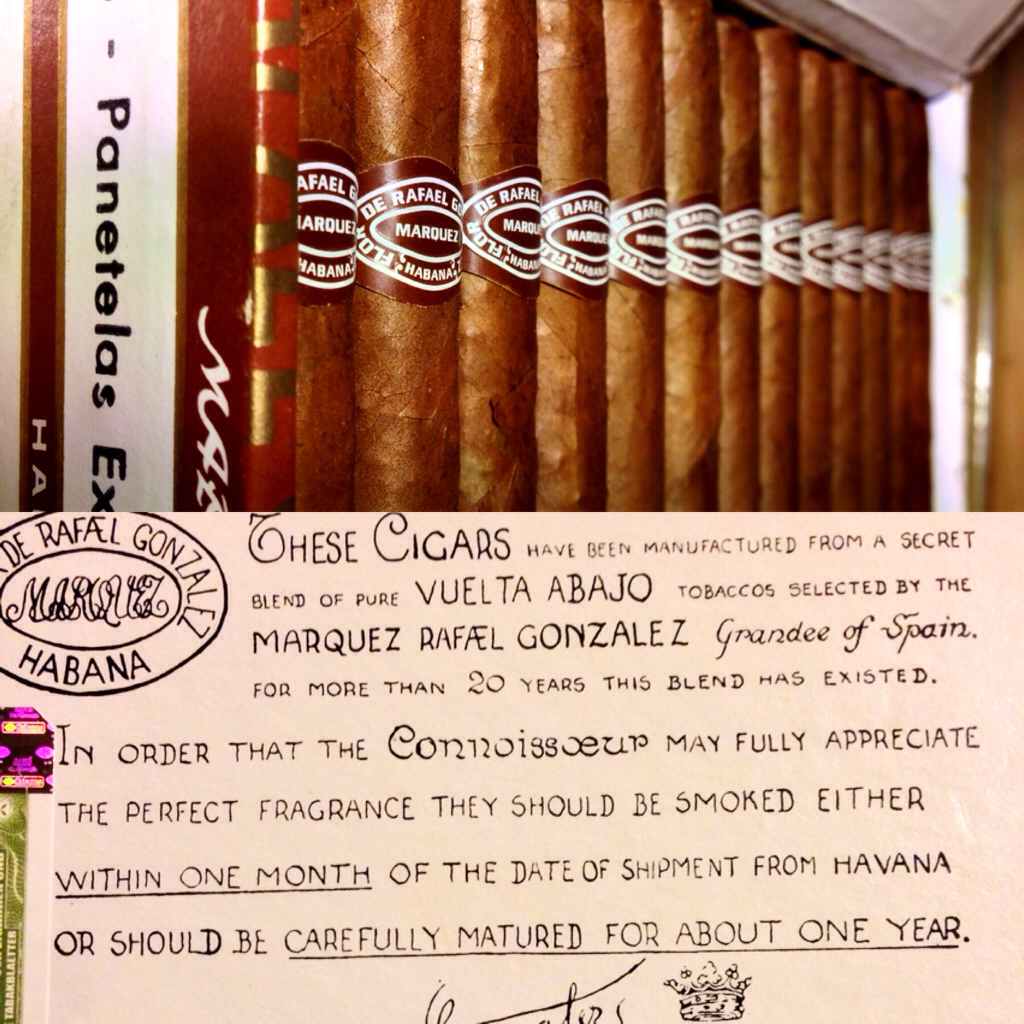 - Panetelas Ex
HA
MAR
AFAEL G
MARQUEZ
HABANA
FLOR DE RAFAEL GO
MARQUEZ
HABANA
FLOR DE RAFAEL
MARQU
HABANA
DE RAFAEL
MARQUE
FLOR HABANA
DE RAFAEL
MAR
DE RAFAEL GONZALEZ
MARQUEZ
HABANA
THESE CIGARS HAVE BEEN MANUFACTURED FROM A SECRET
BLEND OF PURE VUELTA ABAJO TOBACCOS SELECTED BY THE
MARQUEZ RAFÆL GONZALEZ Grandee of Spain.
FOR MORE THAN 20 YEARS THIS BLEND HAS EXISTED.
IN ORDER THAT THE Connoissœur MAY FULLY APPRECIATE
THE PERFECT FRAGRANCE THEY SHOULD BE SMOKED EITHER
WITHIN ONE MONTH OF THE DATE OF SHIPMENT FROM HAVANA
OR SHOULD BE CAREFULLY MATURED FOR ABOUT ONE YEAR.
TABAKBLÄTTER